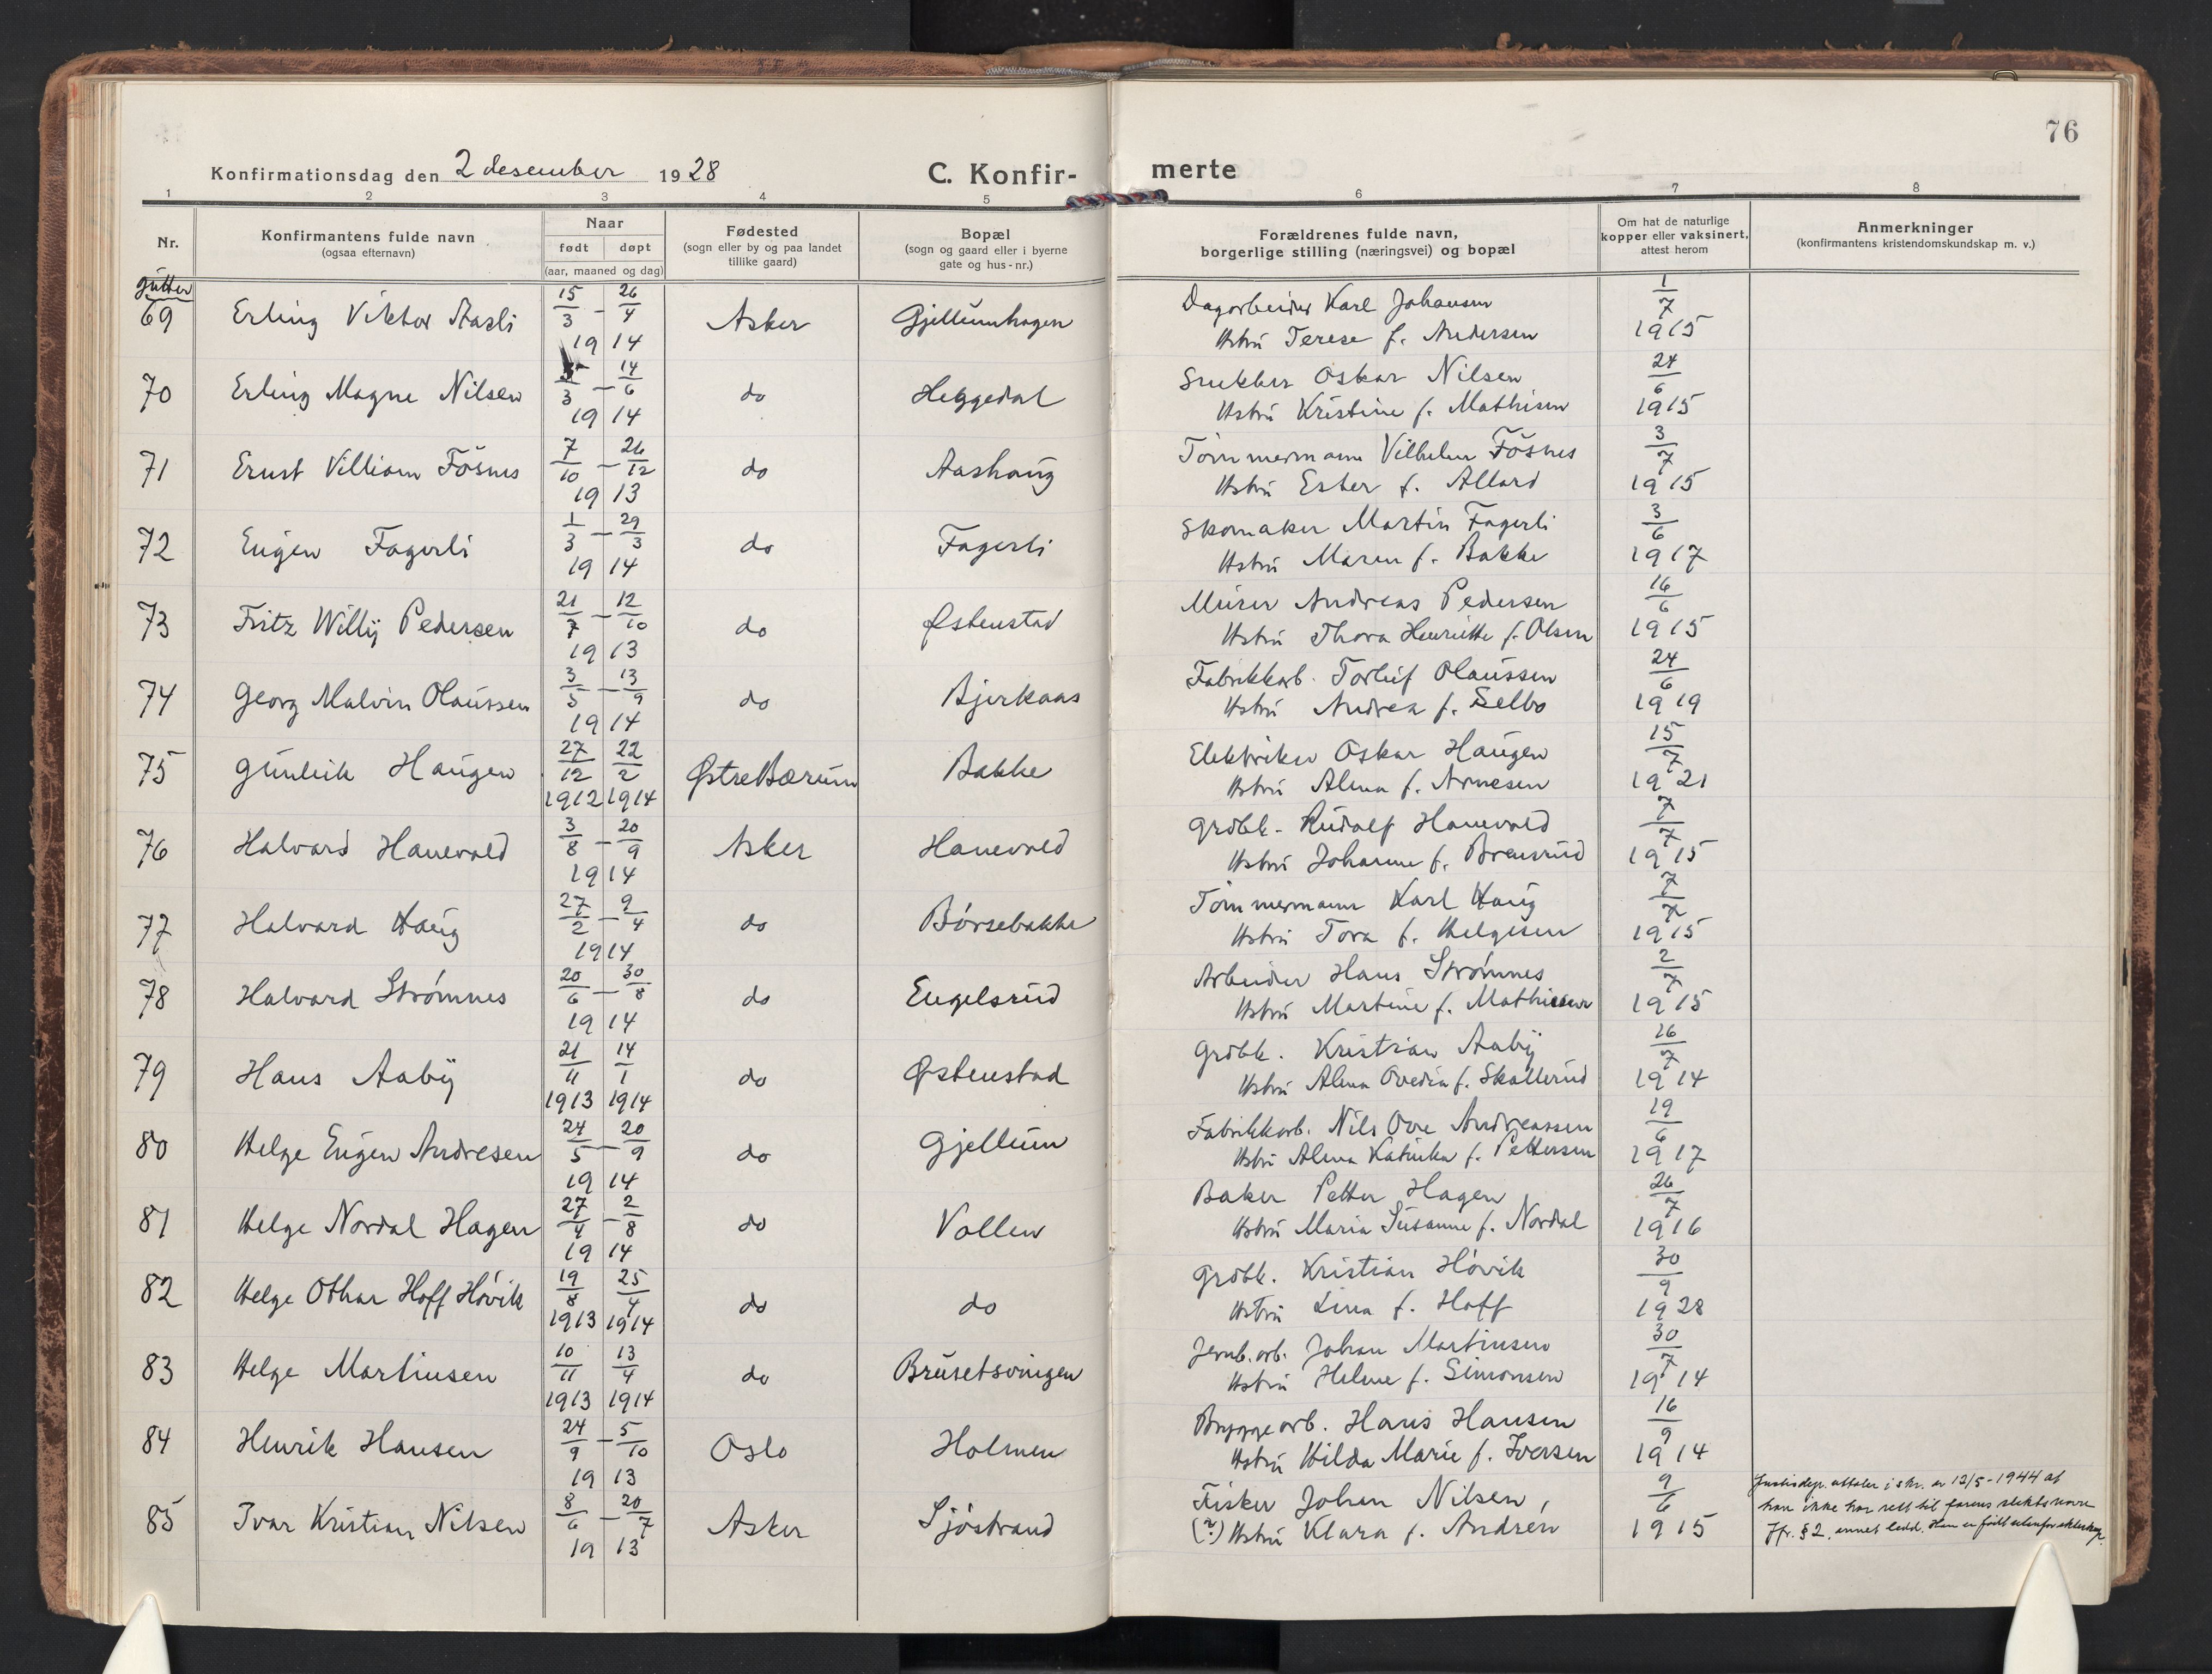 76
Konfirmationsdag den 2 desember 1928
C. Konfir- merte
1 2 3 4 5 6 7 8
Nr.
Konfirmantens fulde navn
(ogsaa efternavn)
Naar
født døpt
(aar, maaned og dag)
Fødested
(sogn eller by og paa landet
tillike gaard)
Bopæl
(sogn og gaard eller i byerne
gate og hus-nr.)
Forældrenes fulde navn,
borgerlige stilling (næringsvei) og bopæl
Om hat de naturlige
kopper eller vaksinert,
attest herom
Anmerkninger
(konfirmantens kristendomskundskap m. v.)
gutter
69 Erling Viktor Aasli 15/3 - 26/4 1914 Asker Gjellumhagen Dagarbeider Karl Johansen 1/7
Hstru Terese f. Andersen 1915
70 Erling Magne Nilsen /3 - 14/6 1914 do Heggedal Snekker Oskar Nilsen 24/6
Hstru Kristine f. Mathisen 1915
71 Ernst Villiam Fosnes 7/10 - 26/12 1913 do Aashaug Tømmermann Vilhelm Fosnes 3/7
Hstru Ester f. Allard 1915
72 Eugen Fagerli 1/3 - 29/3 1914 do Fagerli Skomaker Martin Fagerli 3/6
Hstru Maren f. Bakke 1917
73 Fritz Willy Pedersen 21/7 - 12/10 1913 do Østenstad Murer Andreas Pedersen 16/6
Hstru Thora Henriette f. Olsen 1915
74 Georg Malvin Olaussen 3/5 - 13/9 1914 do Bjerkaas Fabrikkarb. Torleif Olaussen 24/6
Hstru Andrea f. Selbo 1919
75 Gunleik Haugen 27/12 1912 22/2 1914 Østre Bærum Bakke Elektriker Oskar Haugen 15/7
Hstru Alma f. Arnesen 1921
76 Halvard Hanevold 3/8 - 20/9 1914 Asker Hanevold Grdbk. Rudolf Hanevold 7/7
Hstru Johanne f. Brensrud 1915
77 Halvard Haug 27/2 - 9/4 1914 do Børsebakke Tømmermann Karl Haug 7/7
Hstru Tora f. Helgesen 1915
78 Halvard Strømnes 20/6 - 30/8 1914 do Engelsrud Arbeider Hans Strømnes 2/7
Hstru Martine f. Mathiesen 1915
79 Hans Aaby 21/11 1913 14/1 1914 do Østenstad Grdbk. Kristian Aaby 26/7
Hstru Alma Ovedia f. Skallerud 1914
80 Helge Eugen Andresen 24/5 - 20/9 1914 do Gjellum Fabrikkarb. Nils Ove Andreassen 19/6
Hstru Alma Katinka f. Pettersen 1917
81 Helge Nordal Hagen 27/4 - 2/8 1914 do Vollen Baker Petter Hagen 26/7
Hstru Maria Susanne f. Nordal 1916
82 Helge Othar Hoff Høvik 19/8 1913 25/4 1914 do do Grdbk. Kristian Høvik 30/9
Hstru Lina f. Hoff 1928
83 Helge Martinsen 10/11 1913 13/4 1914 do Brusetsvingen Jernb.arb. Johan Martinsen 30/7
Hstru Helene f. Simonsen 1914
84 Henrik Hansen 24/9 - 5/10 1913 Oslo Holmen Bryggearb. Hans Hansen 16/9
Hstru Hilda Marie f. Iversen 1914
85 Ivar Kristian Nilsen 8/6 - 20/7 1913 Asker Sjøstrand Fisker Johan Nilsen, 9/6
(?) Hstru Klara f. Andren 1915
Justisdep. uttaler i skr. av 12/5-1944 at
han ikke har rett til farens slektsnavn
Jfr. § 2, annet ledd. Han er født utenfor ekteskap.